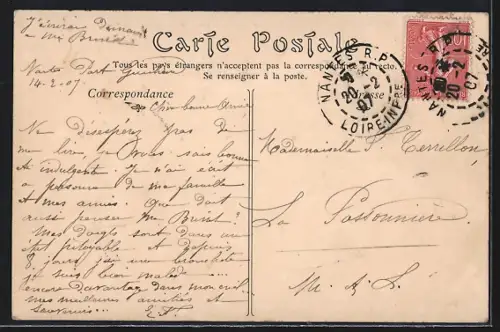 J'écrirai Demain
a Mr Brunet
Carte Postale
Tous les pays étrangers n'acceptent pas la correspondance au recto.
Se renseigner à la poste.
Nantes Port
14-2-07.
Correspondance
Adresse
NANTES R.P.
20-2
07
LOIRE-INFRE
NANTES R.P.
20-2
07
10
Bien bonne Amie
Ne désespérez pas de
me lire. Je vous sais bonne
et indulgente. Je n'ai écrit
a personne de ma famille
et mes amis. Que doit
aussi penser Mr Brunet?
Mes doigts sont dans un
état pitoyable et depuis
8 jours j'ai une bronchite
je suis bien malade...
encore davantage dans mon exil...
mes meilleures amitiés et
souvenirs...
Mademoiselle F. Terrillon
La Possonnière
M. & L.